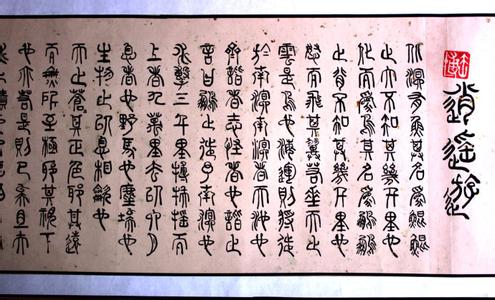 逍遙游
北溟有魚其名為鯤鯤
之大不知其幾千里也
化而為鳥其名為鵬鵬
之背不知其幾千里也
怒而飛其翼若垂天之
雲是鳥也海運則將徙
於南溟南溟者天池也
齊諧者志怪者也諧之
言曰鵬之徙於南溟也
水擊三千里摶扶搖而
上者九萬里去以六月
息者也野馬也塵埃也
生物之以息相吹也
天之蒼蒼其正色耶其遠
而無所至極耶其視下
也亦若是則已矣且夫
水之積也